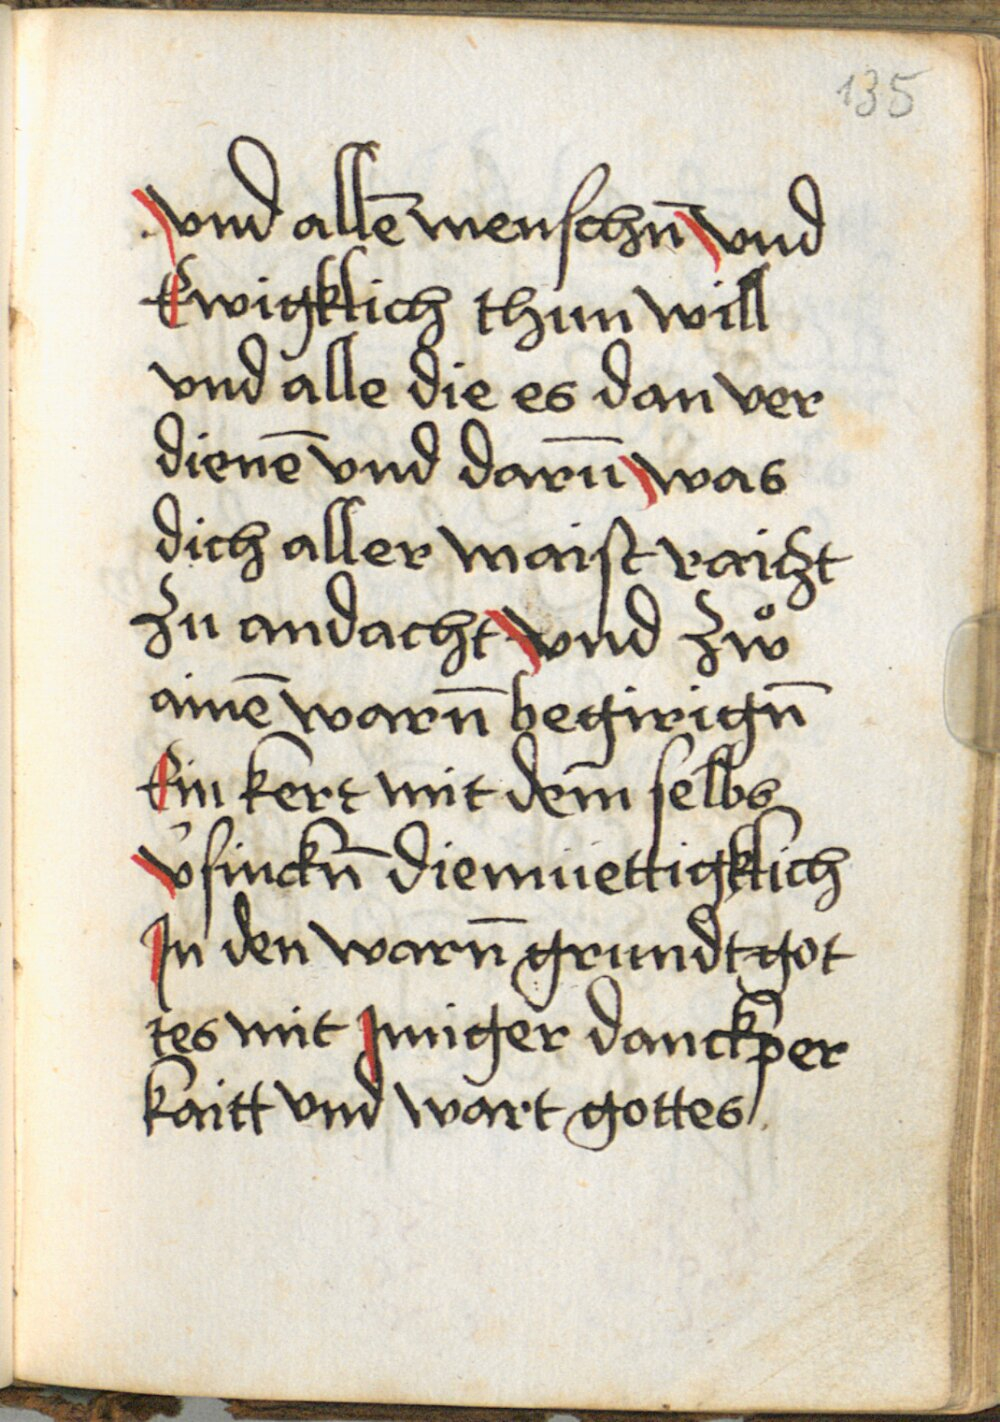 135
vnd allē menschn̄ vnd
Ewigklich thun will
vnd alle die es dan ver
dienē vnd darū was
dich aller maist raitzt
zu andacht vnd zẘ
ainē warn̄ begirign̄
Ein kert mit dem̄ selbs
v̉sinckn̄ diemüettigklich
In den warn̄ grundt got
tes mit Inniger danckper
kaitt vnd wart gottes